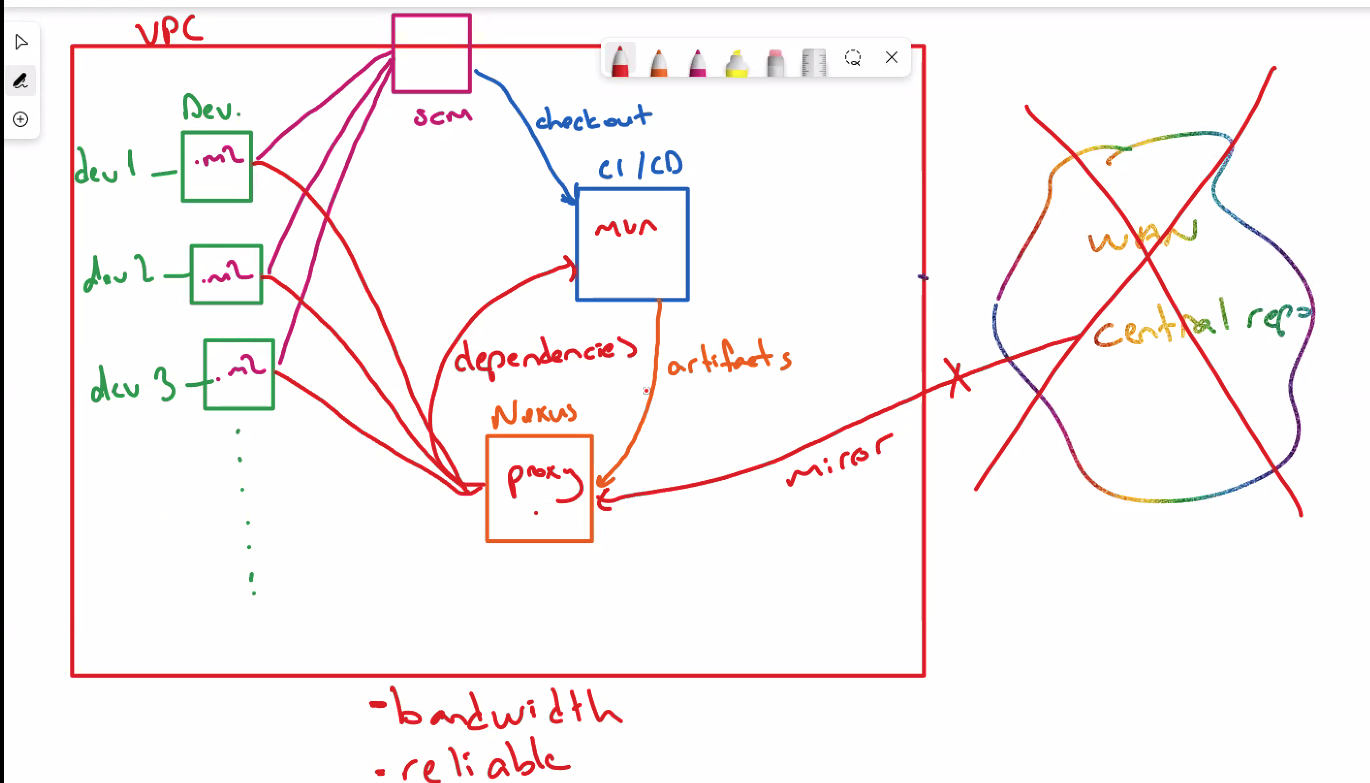 VPC
scm
checkout
Dev.
dev 1
.m2
CI/CD
mvn
dev 2
.m2
dev 3
.m2
dependencies
artifacts
Nexus
proxy
miror
wan
central repo
- bandwidth
- reliable